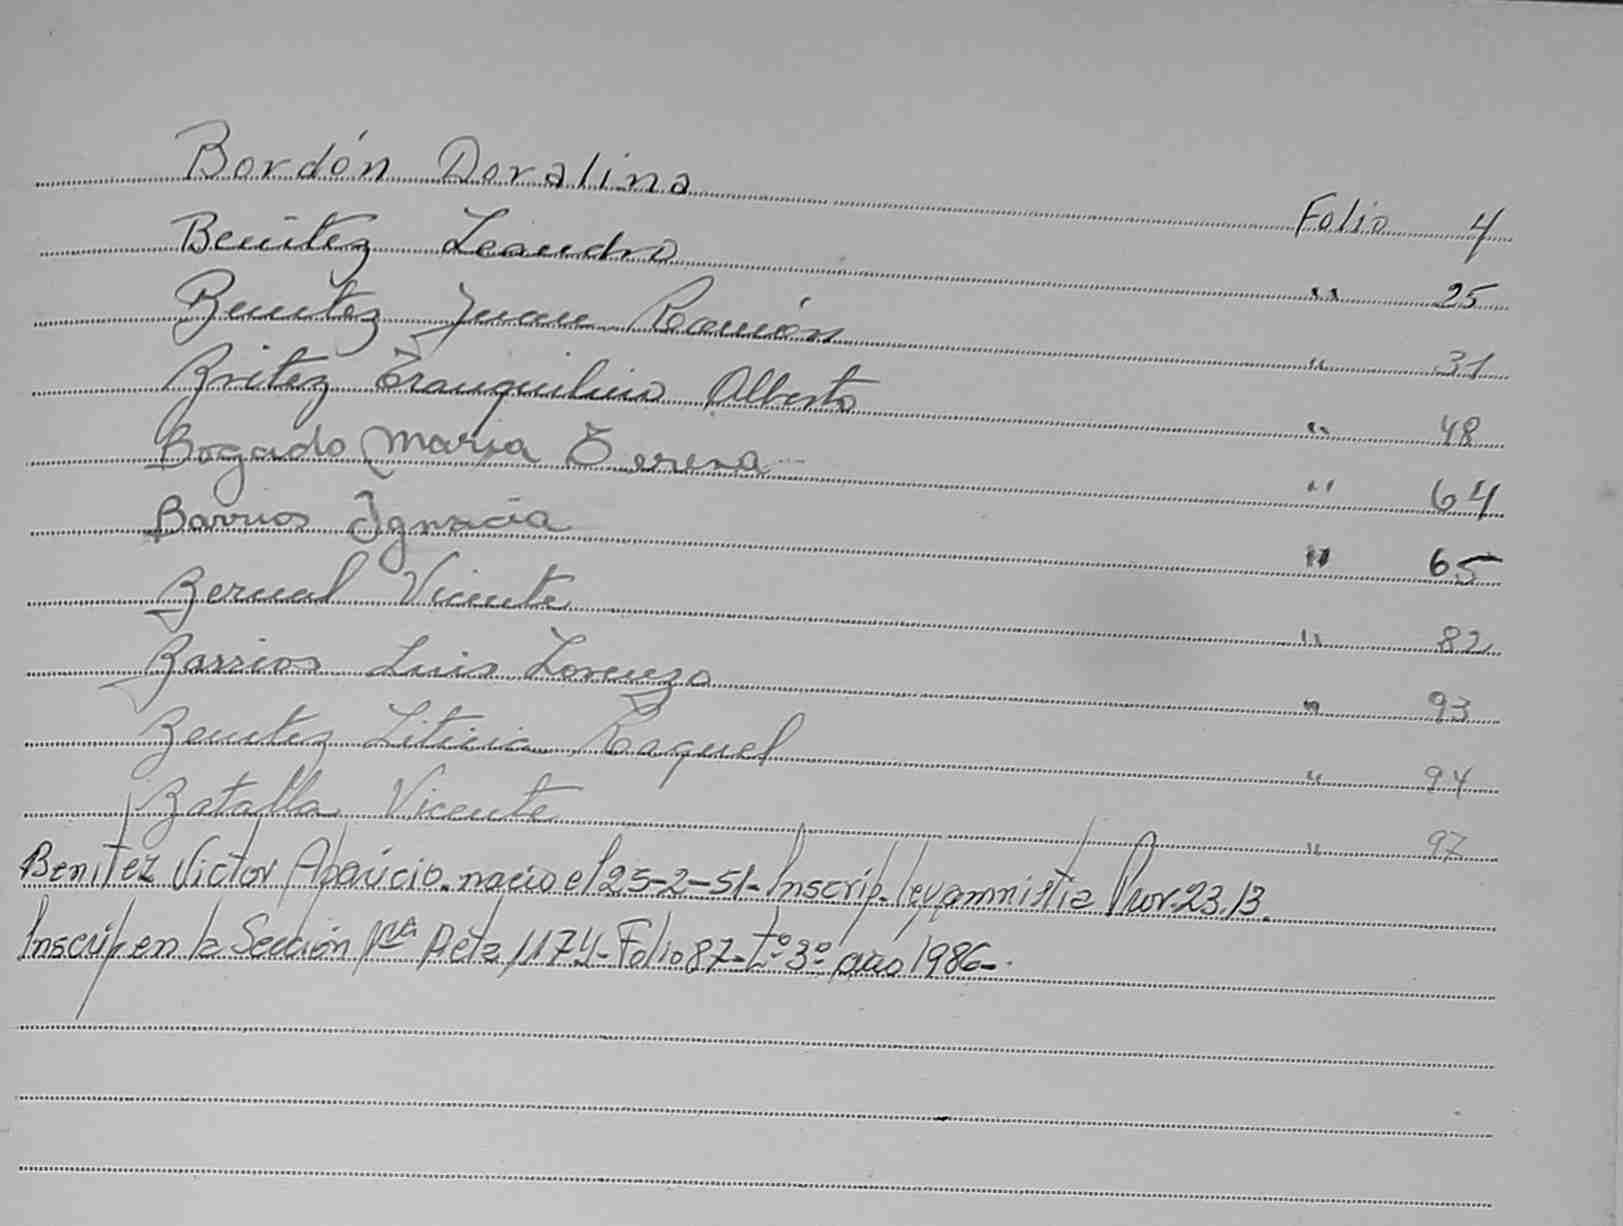 Bordón Doralina Folio 4
Benitez Leandro " 25
Benitez Juan Ramón " 31
Britez Tranquilino Alberto " 48
Bogado Maria Teresa " 64
Barrios Ignacia " 65
Bernal Vicente " 82
Barrios Luis Lorenzo " 93
Benitez Liticia Raquel " 94
Batalla Vicente " 97
Benitez Victor Aparicio. nacio el 25-2-51- Inscrip. ley amnistia Prov. 23.13.
Inscrip en la Sección 1ra Acta 1174- Folio 87- tº 3º año 1986-.